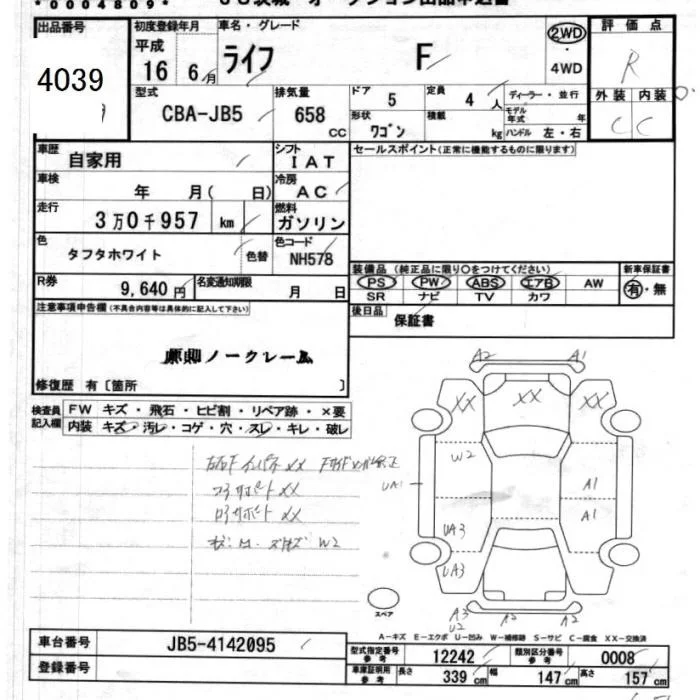 *0004809*
出品番号
4039
初度登録年月
平成
16 6 月
車名・グレード
ライフ F
2WD
・
4WD
評価点
R
外装 内装
C C
型式
CBA-JB5
排気量
658
CC
ドア
5
定員
4 人
ディーラー・並行
形状
ワゴン
積載
kg
モデル年式 年
ハンドル 左・右
車歴
自家用
シフト
IAT
セールスポイント(正常に機能するものに限ります)
車検
年 月( 日)
冷房
AC
走行
3万0千957 km
燃料
ガソリン
色
タフタホワイト
色替
色コード
NH578
装備品 (純正品に限り○をつけてください)
新車保証書
PS PW ABS エアB AW
有・無
SR ナビ TV カワ
R券
9,640 円
名変通知期限
月 日
後日品
保証書
注意事項申告欄(不具合内容等は具体的に記入して下さい)
原則ノークレーム
修復歴 有〔箇所 〕
検査員記入欄
FW キズ・飛石・ヒビ割・リペア跡・×要
内装 キズ・汚レ・コゲ・穴・スレ・キレ・破レ
A2 A1
XX XX XX
W2
UA1
A1
A1
UA3
UA3
スペア
A3
U2
A2 A2
A-キズ E-エクボ U-凹み W-補修跡 S-サビ C-腐食 XX-交換済
車台番号
JB5-4142095
型式指定番号
参考
12242
類別区分番号
参考
0008
登録番号
車庫証明用
参考
長さ
339 cm
幅
147 cm
高さ
157 cm